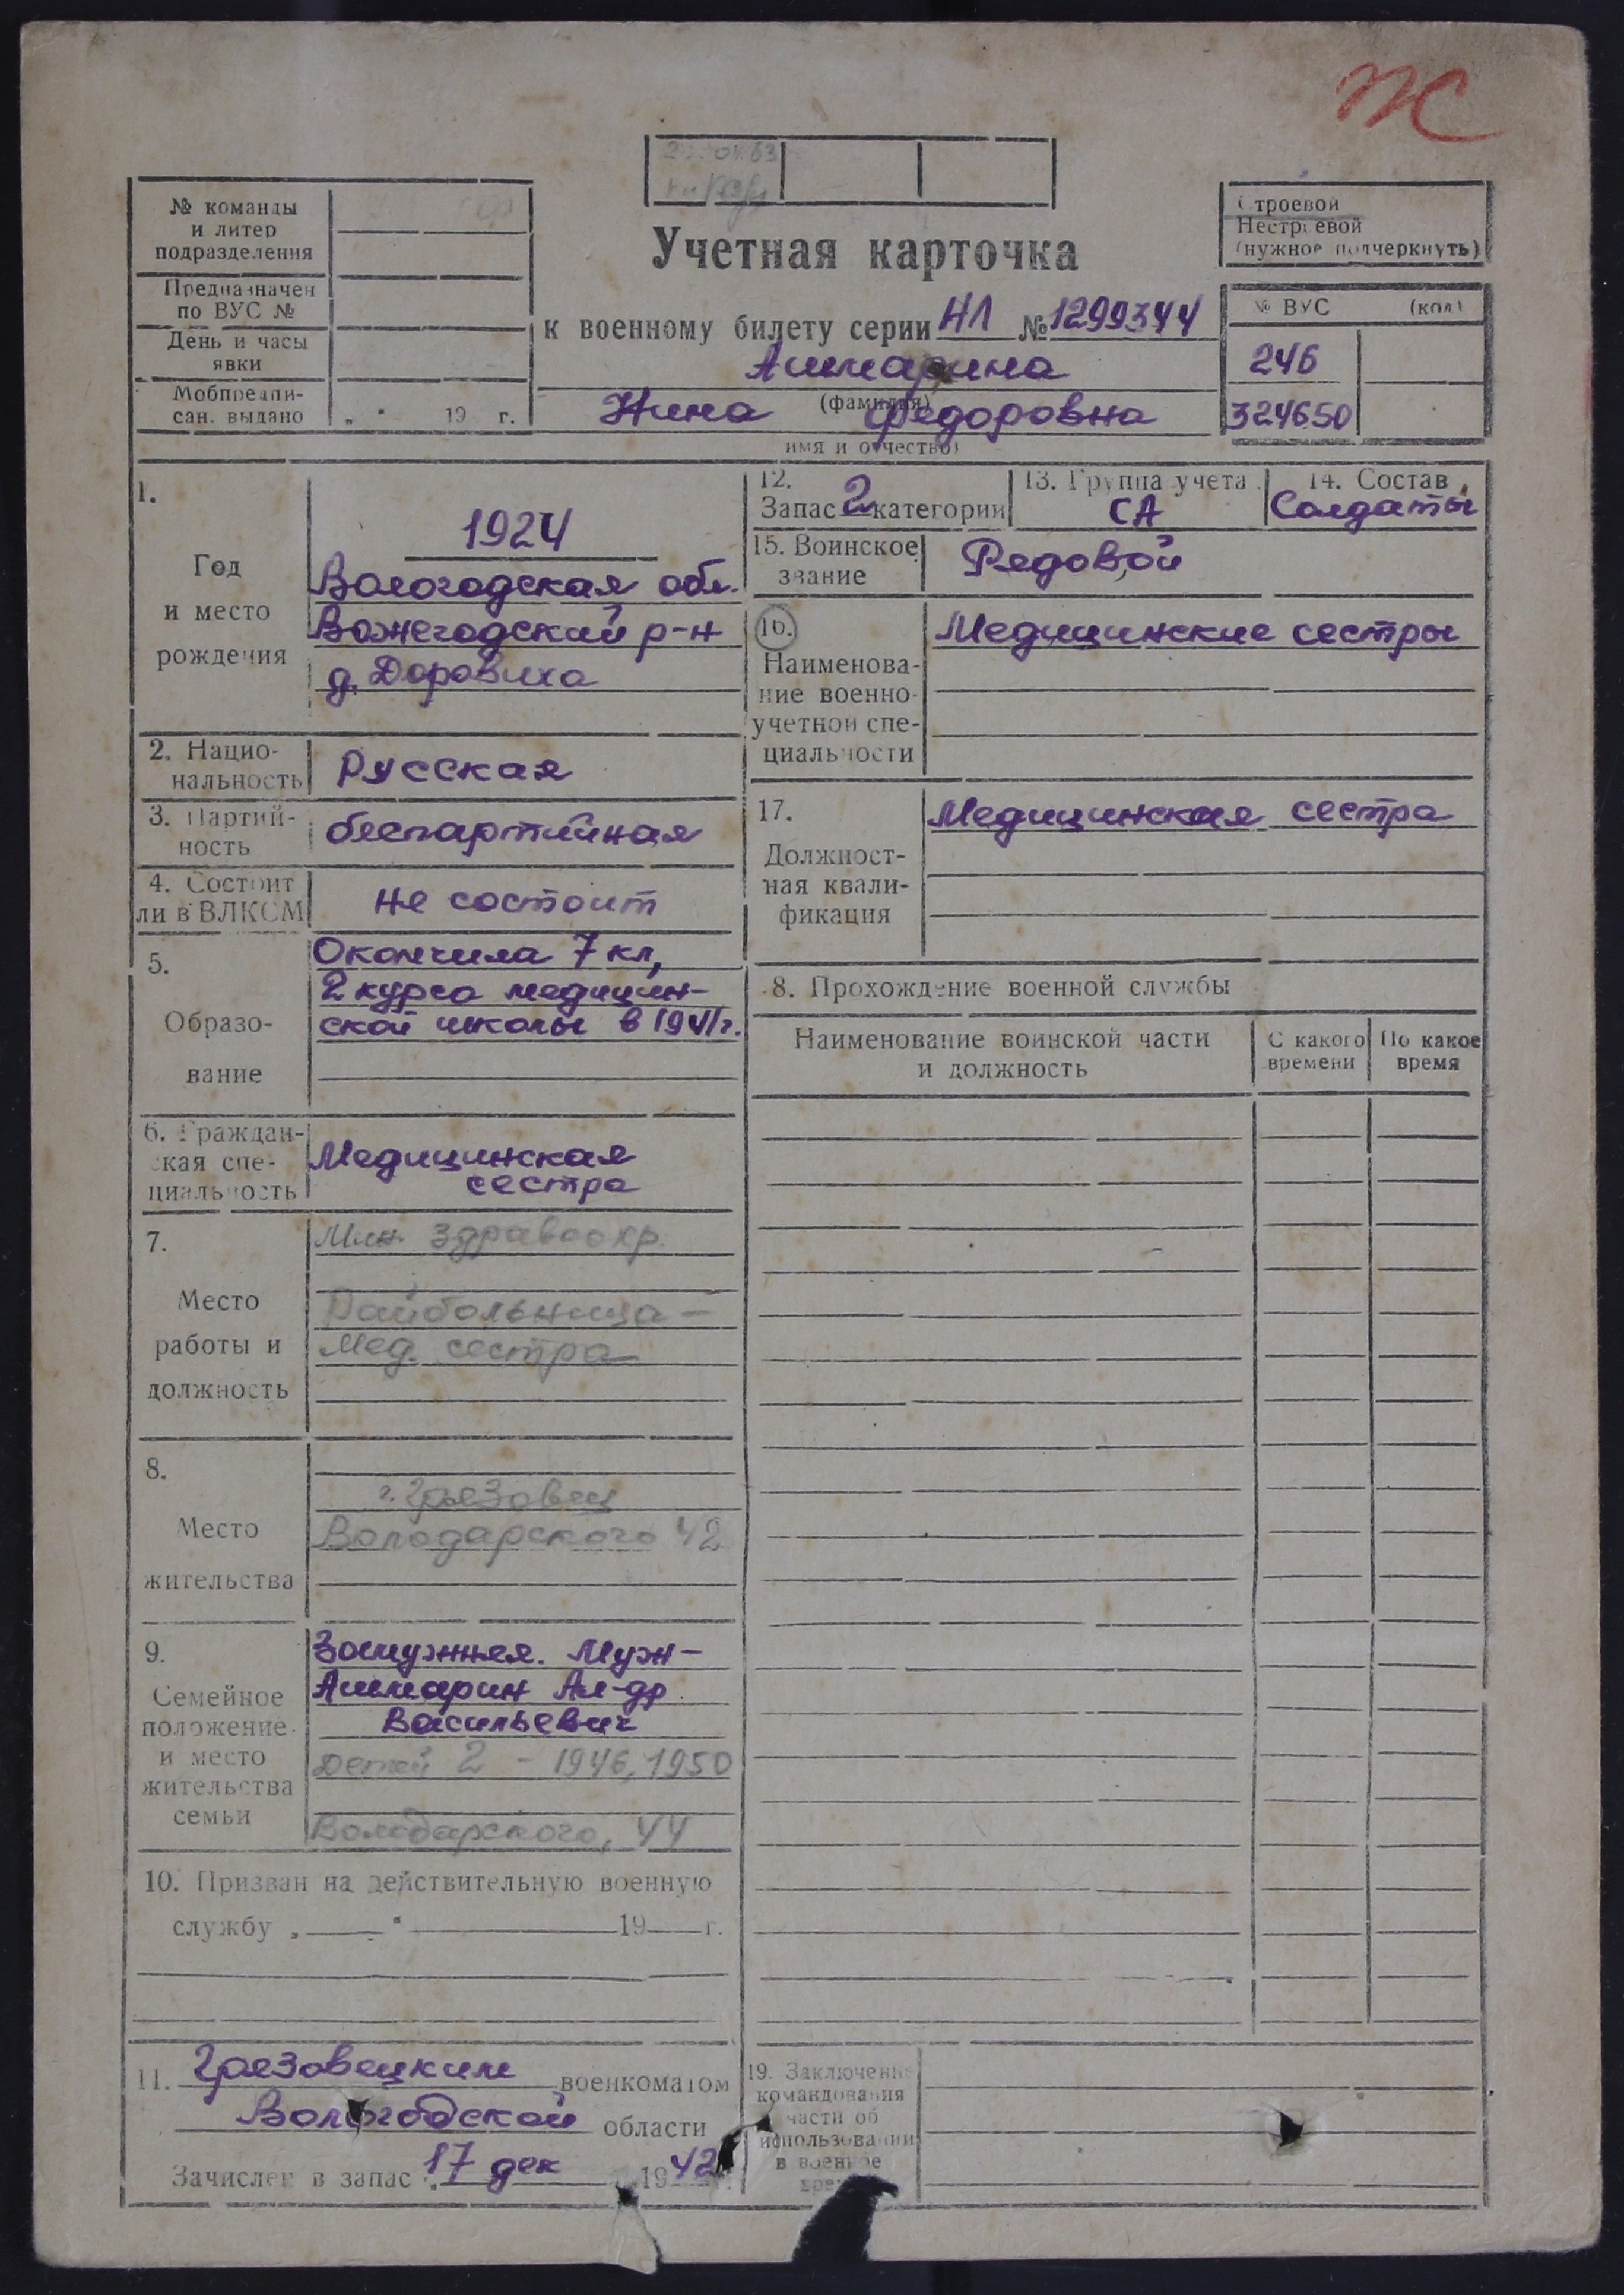 Ж
№ команды
и литер
подразделения
Предназначен
по ВУС №
День и часы
явки
Мобпредпи-
сан. выдано „ “ 19 г.
Учетная карточка
к военному билету серии НЛ № 1299344
Ашмарина
(фамилия)
Нина Федоровна
имя и отчество)
Строевой
Нестроевой
(нужное подчеркнуть)
№ ВУС (код)
246
324650
1.
Год
и место
рождения
1924
Вологодская обл.
Вожегодский р-н
д. Доровиха
2. Нацио-
нальность
Русская
3. Партий-
ность
беспартийная
4. Состоит
ли в ВЛКСМ
не состоит
5.
Образо-
вание
Окончила 7 кл,
2 курса медицин-
ской школы в 1941г.
6. Граждан-
ская спе-
циальность
Медицинская
сестра
7.
Место
работы и
должность
Мин. здравоохр.
Райбольница –
Мед. сестра
8.
Место
жительства
г. Грязовец
Володарского 42
9.
Семейное
положение
и место
жительства
семьи
Замужняя. Муж-
Ашмарин Ал-др
Васильевич
Детей 2 – 1946, 1950
Володарского, 44
10. Призван на действительную военную
службу „ “ 19 г.
11. Грязовецким военкоматом
Вологодской области
Зачислен в запас 17 дек 1942 г.
12.
Запас 2 категории
13. Группа учета
СА
14. Состав
Солдаты
15. Воинское
звание
Рядовой
16.
Наименова-
ние военно-
учетной спе-
циальности
Медицинские сестры
17.
Должност-
ная квали-
фикация
Медицинская сестра
8. Прохождение военной службы
Наименование воинской части
и должность
С какого
времени
По какое
время
19. Заключение
командования
части об
использовании
в военное